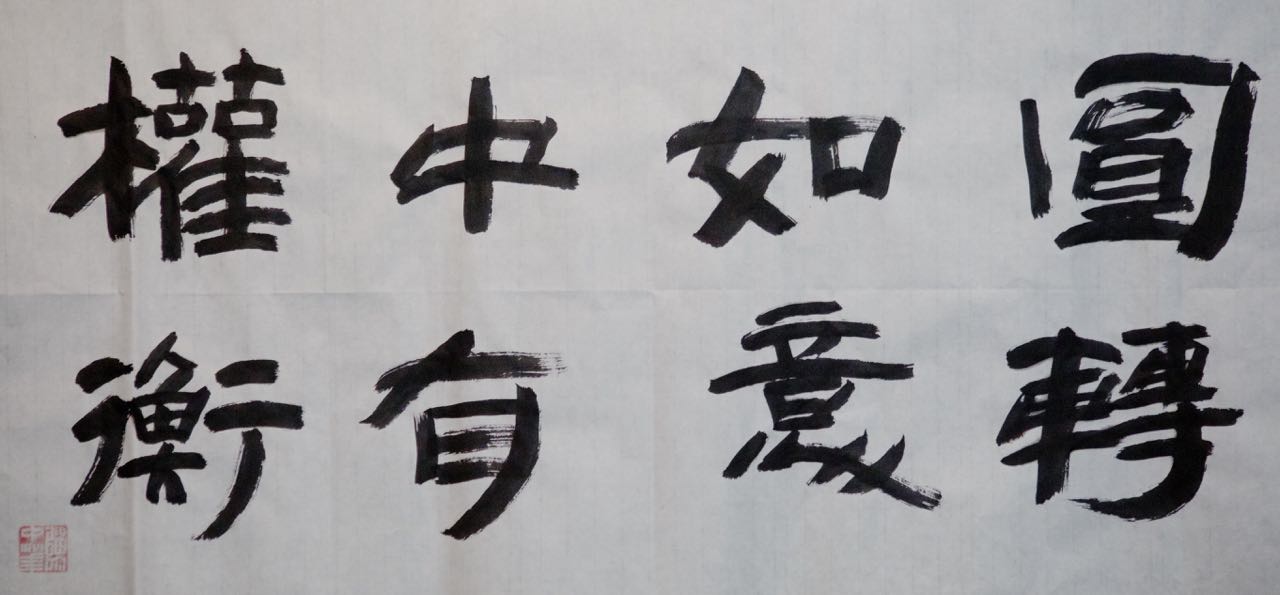 圓轉
如意
中有
權衡